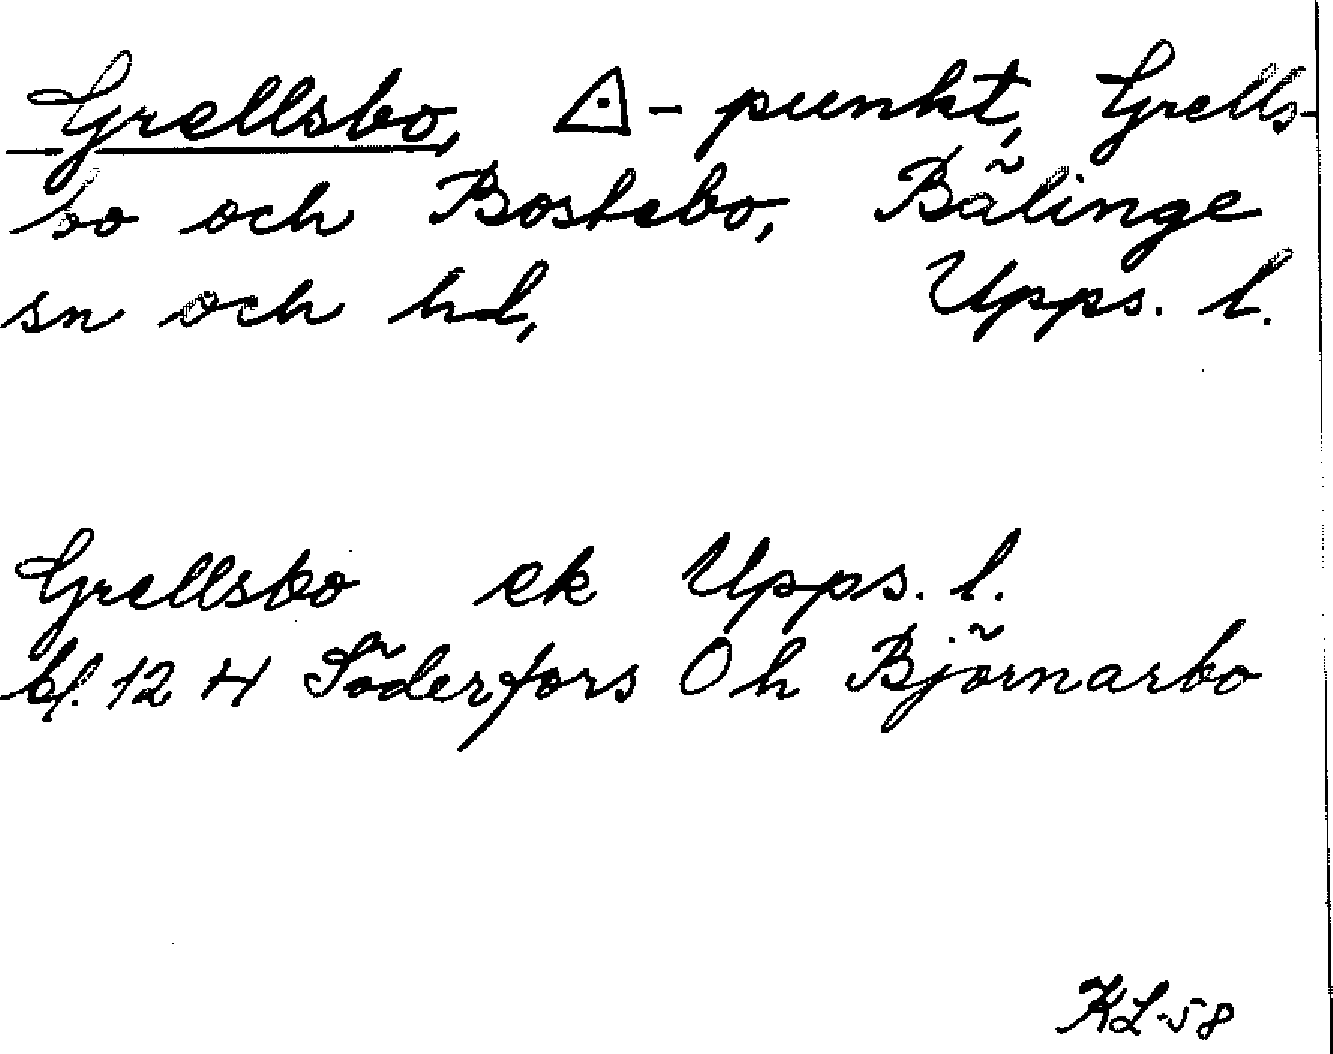 Grellsbo, △-punkt, Grells-
bo och Bostebo, Bälinge
sn och hd, Upps. l.
Grellsbo ek Upps. l.
bl. 12 H Söderfors Oh Björnarbo
KL-58